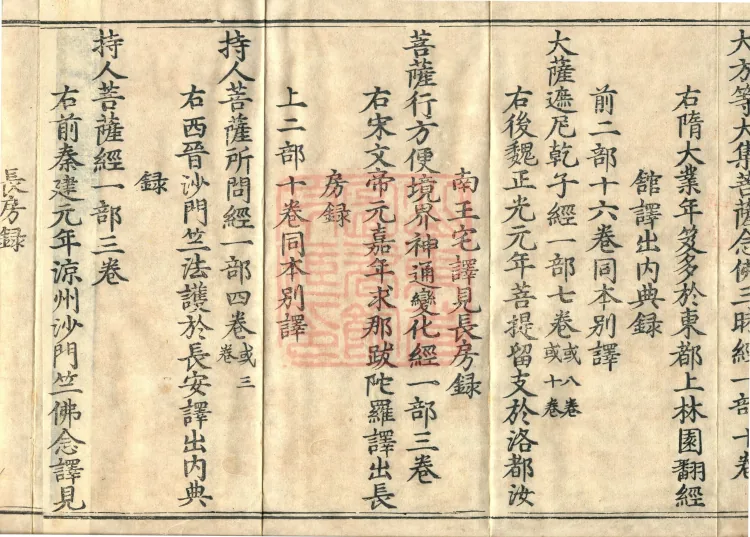 大方等大集菩薩念佛三昧經一部十卷
右隋大業年笈多於東都上林園翻經
館譯出内典録
前二部十六卷同本別譯
大薩遮尼乾子經一部七卷或八卷或十卷
右後魏正光元年菩提留支於洛都汝
南王宅譯見長房録
菩薩行方便境界神通變化經一部三卷
右宋文帝元嘉年求那跋陀羅譯出長
房録
上二部十卷同本別譯
持人菩薩所問經一部四卷或三卷
右西晉沙門竺法護於長安譯出内典
録
持人菩薩經一部三卷
右前秦建元年涼州沙門竺佛念譯見
長房録